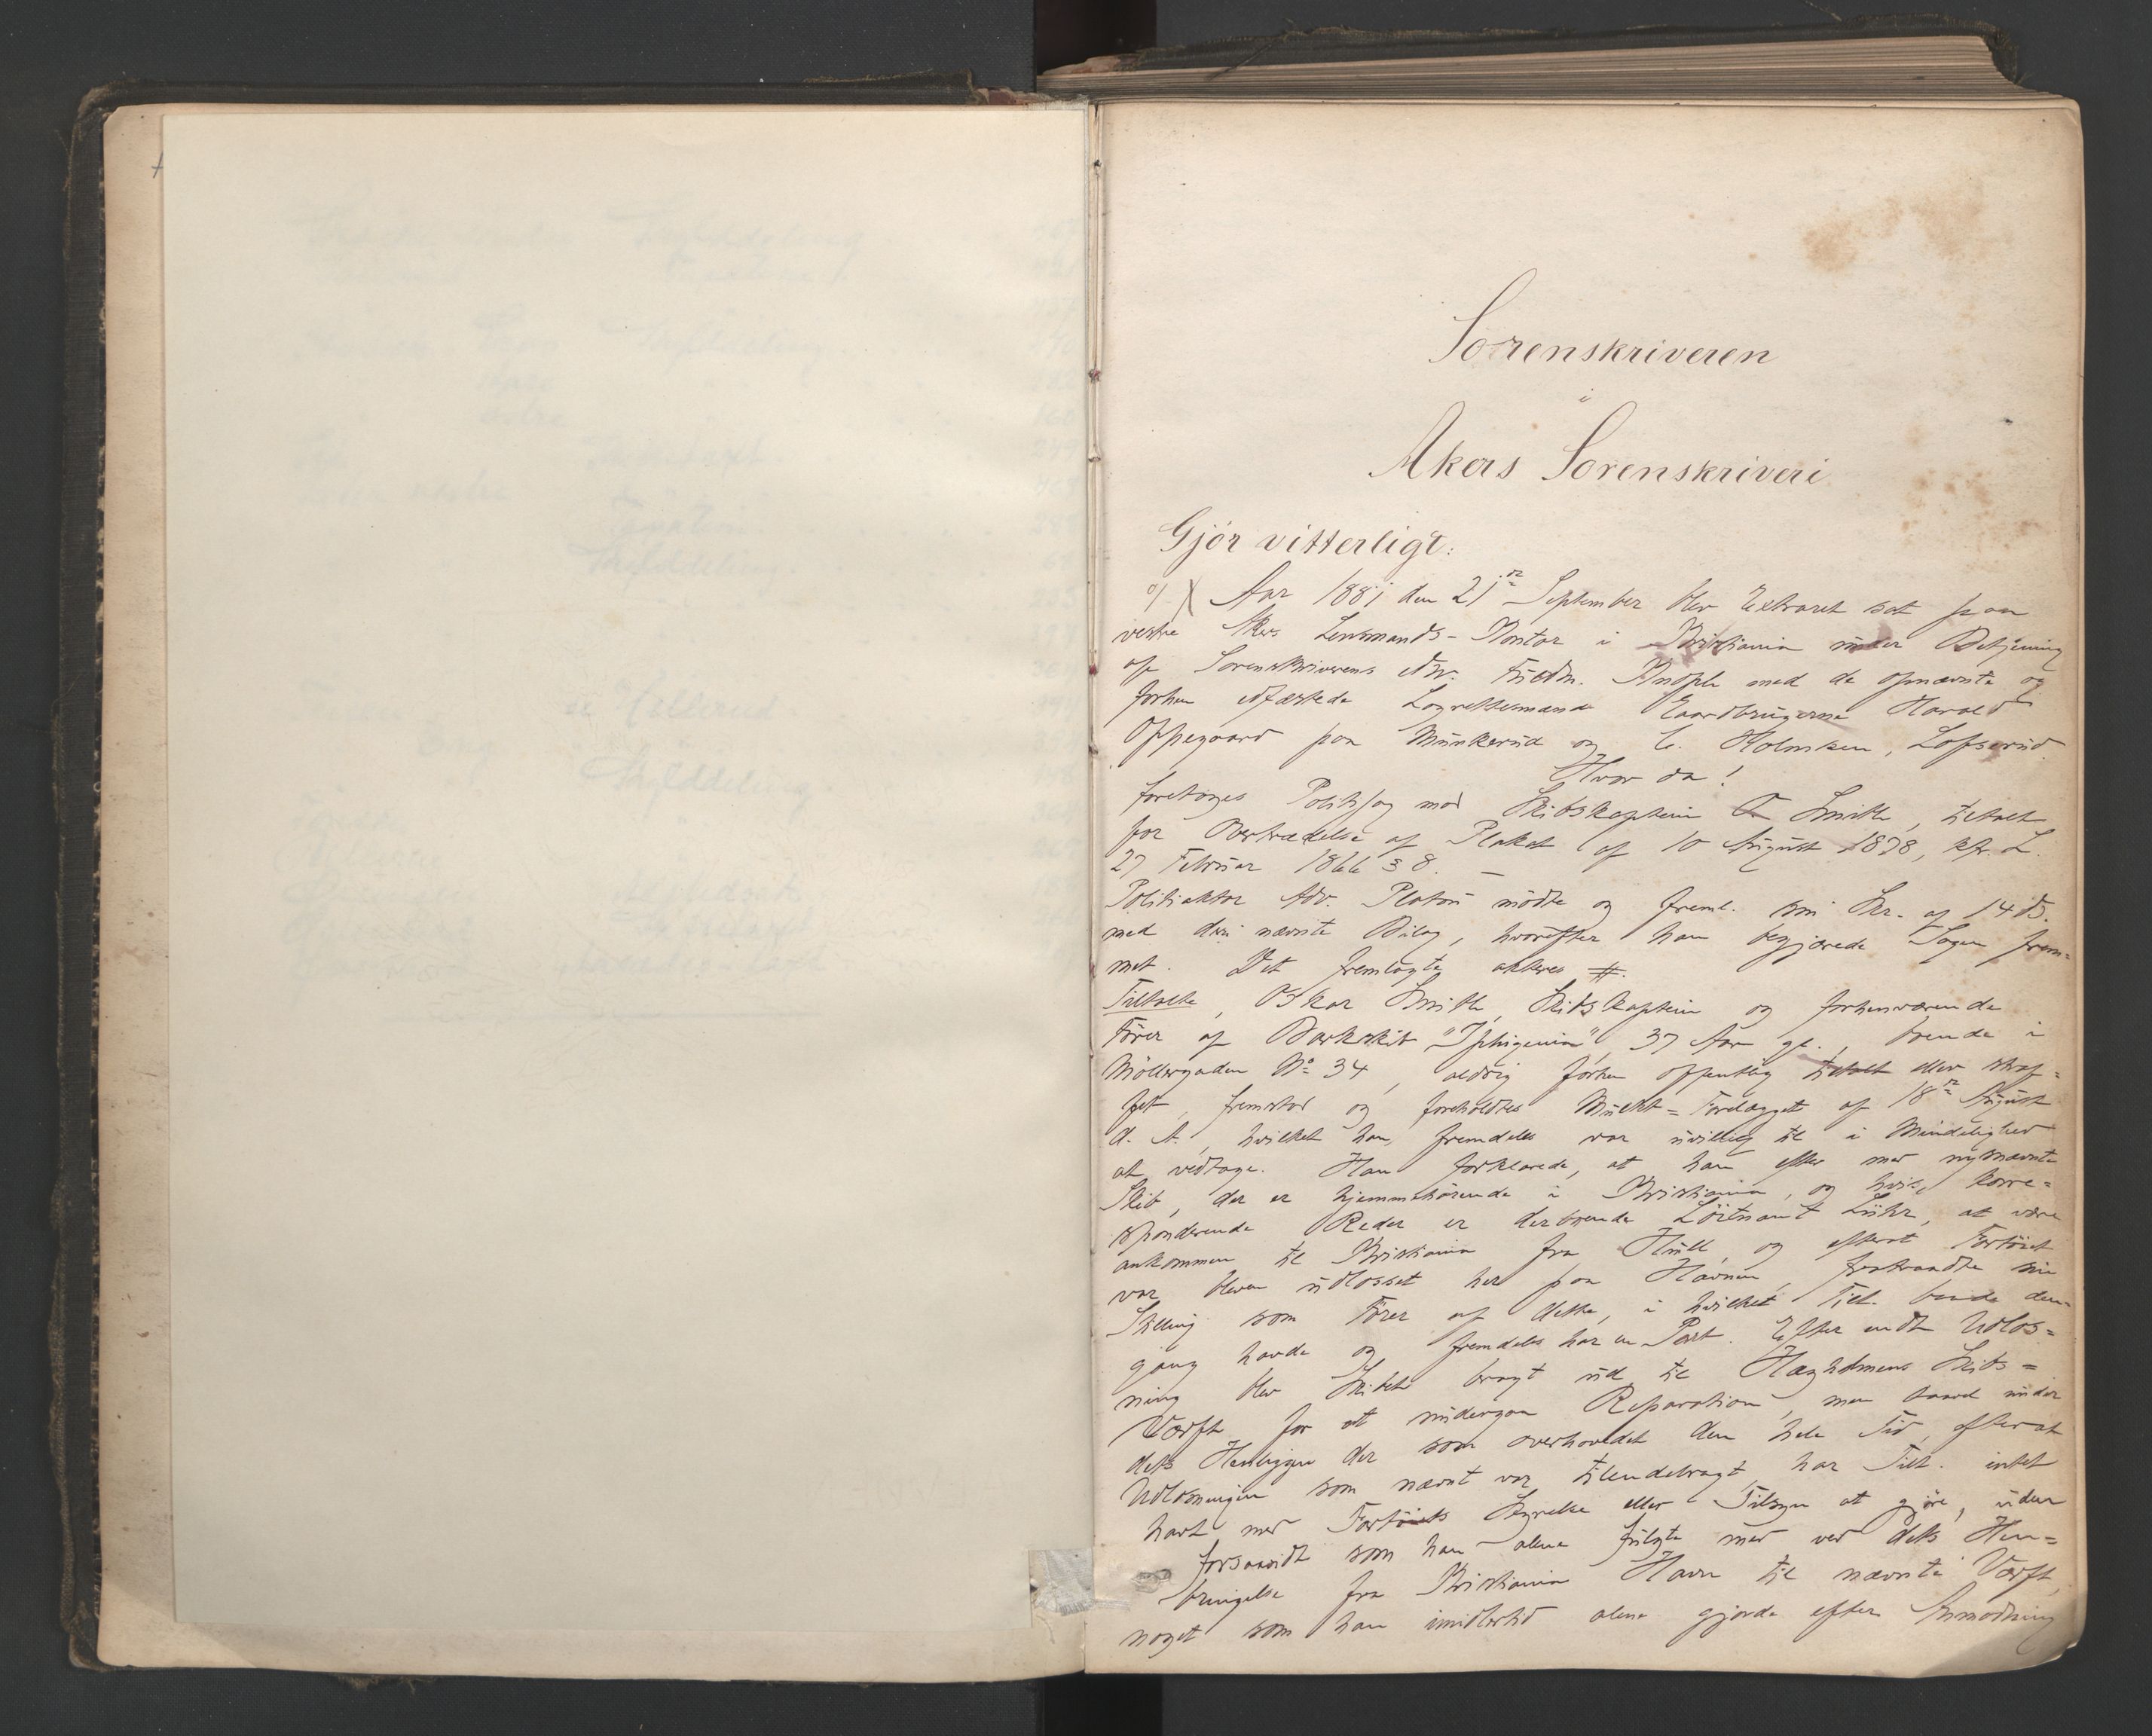 Sorenskriveren
i
Akers Sorenskriveri
Gjör vitterligt:
Aar 1881 den 21de September blev Extraret sat paa
vestre Akers Lensmands-Kontor i Kristiania under Betjening
af Sorenskriverens edsv. Fuldm. med de opnævnte og
forhen edfæstede Lagrettesmænd Gaardbrugerne Harald
Oppegaard paa Munkerud og C. Holmsen, Lofsrud.
Hvor da!
foretoges Politisag mod Skibskaptein O Smith, tiltalt
for Overtrædelse af Plakat af 10 August 1878, kfr. L
27 Februar 1866 § 8. —
Politiaktor Adv. Platou mödte og freml. sin Skr. af 14 ds.
med deri nævnte Bilag, hvorefter han begjærede Sagen frem=
met. Det fremlagte akteres #.
Tiltalte, Oskar Smith, Skibskaptein og forhenværende
Förer af Barkskib "Iphigenia", 37 Aar gl., boende i
Möllergaden No 34, aldrig forhen offentlig tiltalt eller straf=
fet, fremstod og foreholdtes Mulkt=Forelægget af 18de August
d. A., hvilket han fremdeles var uvillig til i Mindelighed
at vedtage. Han forklarede, at han efter med nysnævnte
Skib, der er hjemmehörende i Kristiania, og hvis korre=
sponderende Reder er derboende Löitnant Lühr, at være
ankommen til Kristiania fra Hull, og efterat Fartöiet
var bleven udlosset her paa Havnen, fratraadte sin
Stilling som Förer af dette, i hvilket Tilt. baade den=
gang havde og fremdeles har en Part. Efter endt Udlos=
ning blev Skibet bragt ud til Skibs=
Værft for at undergaa Reparation, men saavel under
dets Henliggen der som overhovedet den hele Tid, efterat
Udlosningen som nævnt var tilendebragt, har Tilt. intet
havt med Fartöiets Styrelse eller Tilsyn at gjöre, uden
forsaavidt som han alene fulgte med ved dets Hen=
bringelse fra Kristiania Havn til nævnte Værft,
noget som han imidlertid alene gjorde efter Anmodning